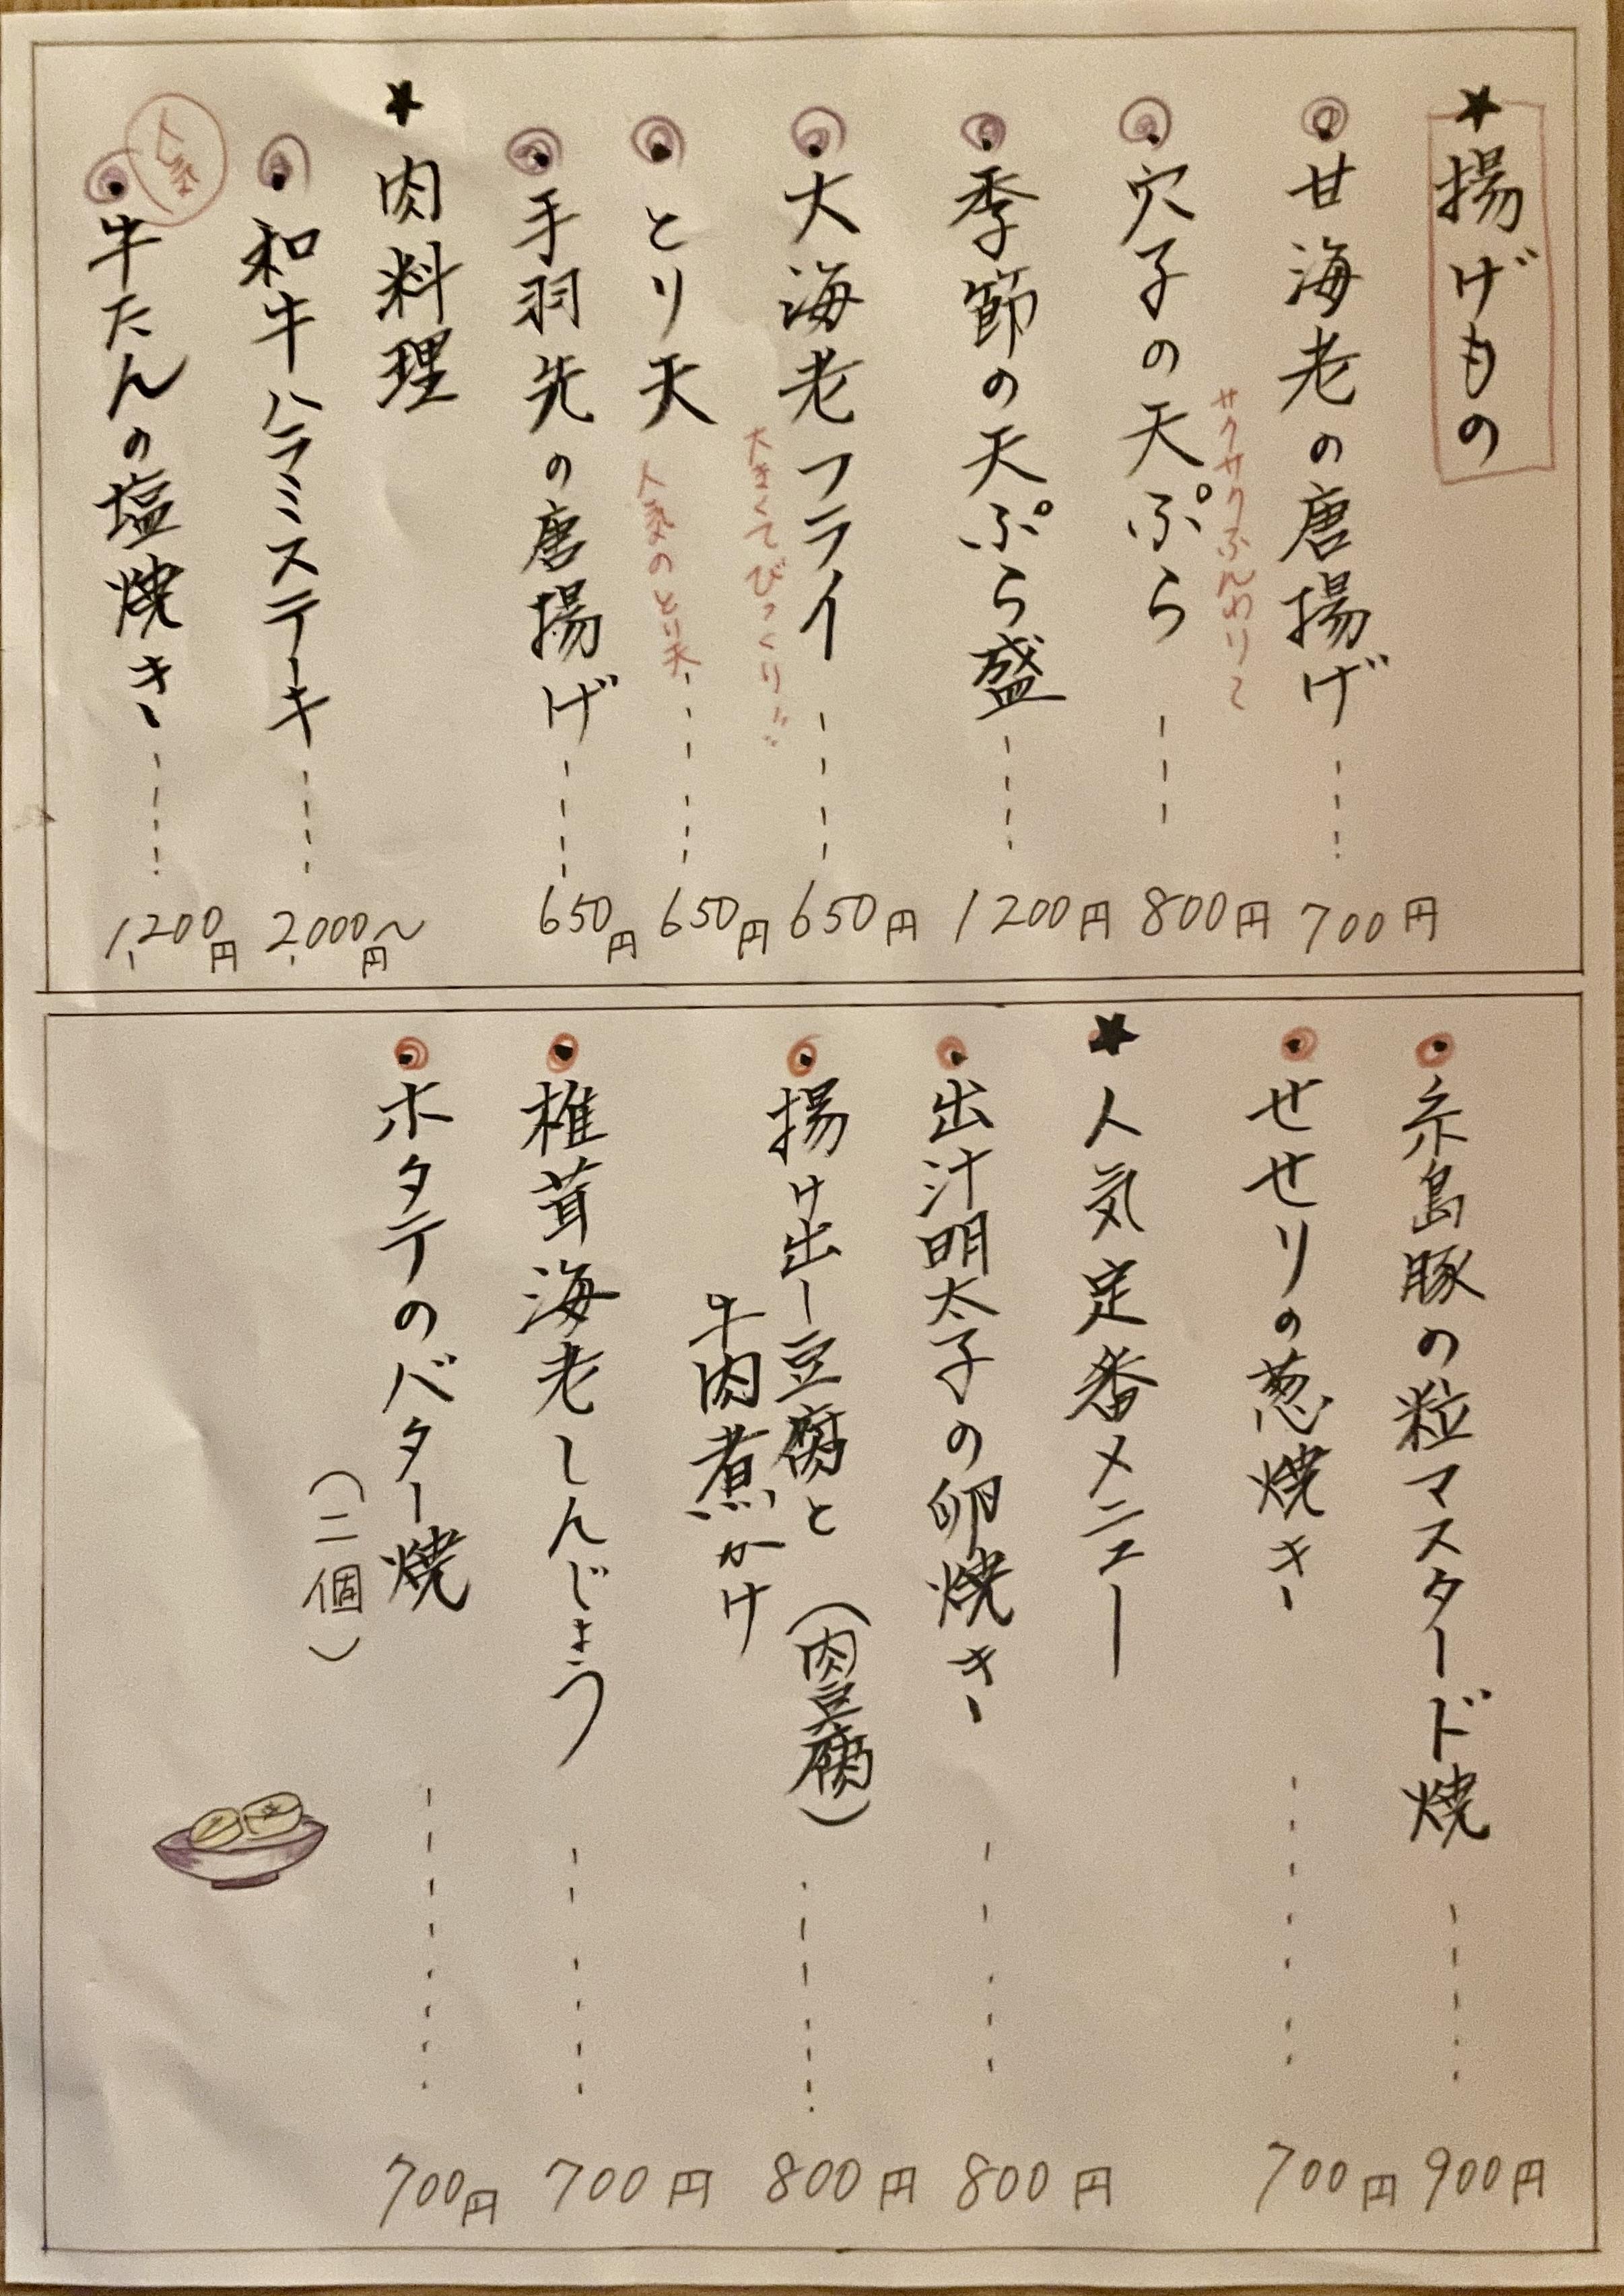 ★揚げもの
甘海老の唐揚げ 700円
サクサクふんわり〜
穴子の天ぷら 800円
季節の天ぷら盛 1200円
大海老フライ 650円
大きくてびっくり!!
とり天 650円
人気のとり天
手羽先の唐揚げ 650円
★肉料理
和牛ハラミステーキ 2,000円〜
人気
牛たんの塩焼き 1,200円
糸島豚の粒マスタード焼 900円
せせりの葱焼き 700円
★人気定番メニュー
出汁明太子の卵焼き 800円
揚げ出し豆腐と
牛肉煮かけ
(肉豆腐) 800円
椎茸海老しんじょう 700円
ホタテのバター焼 700円
(二個)